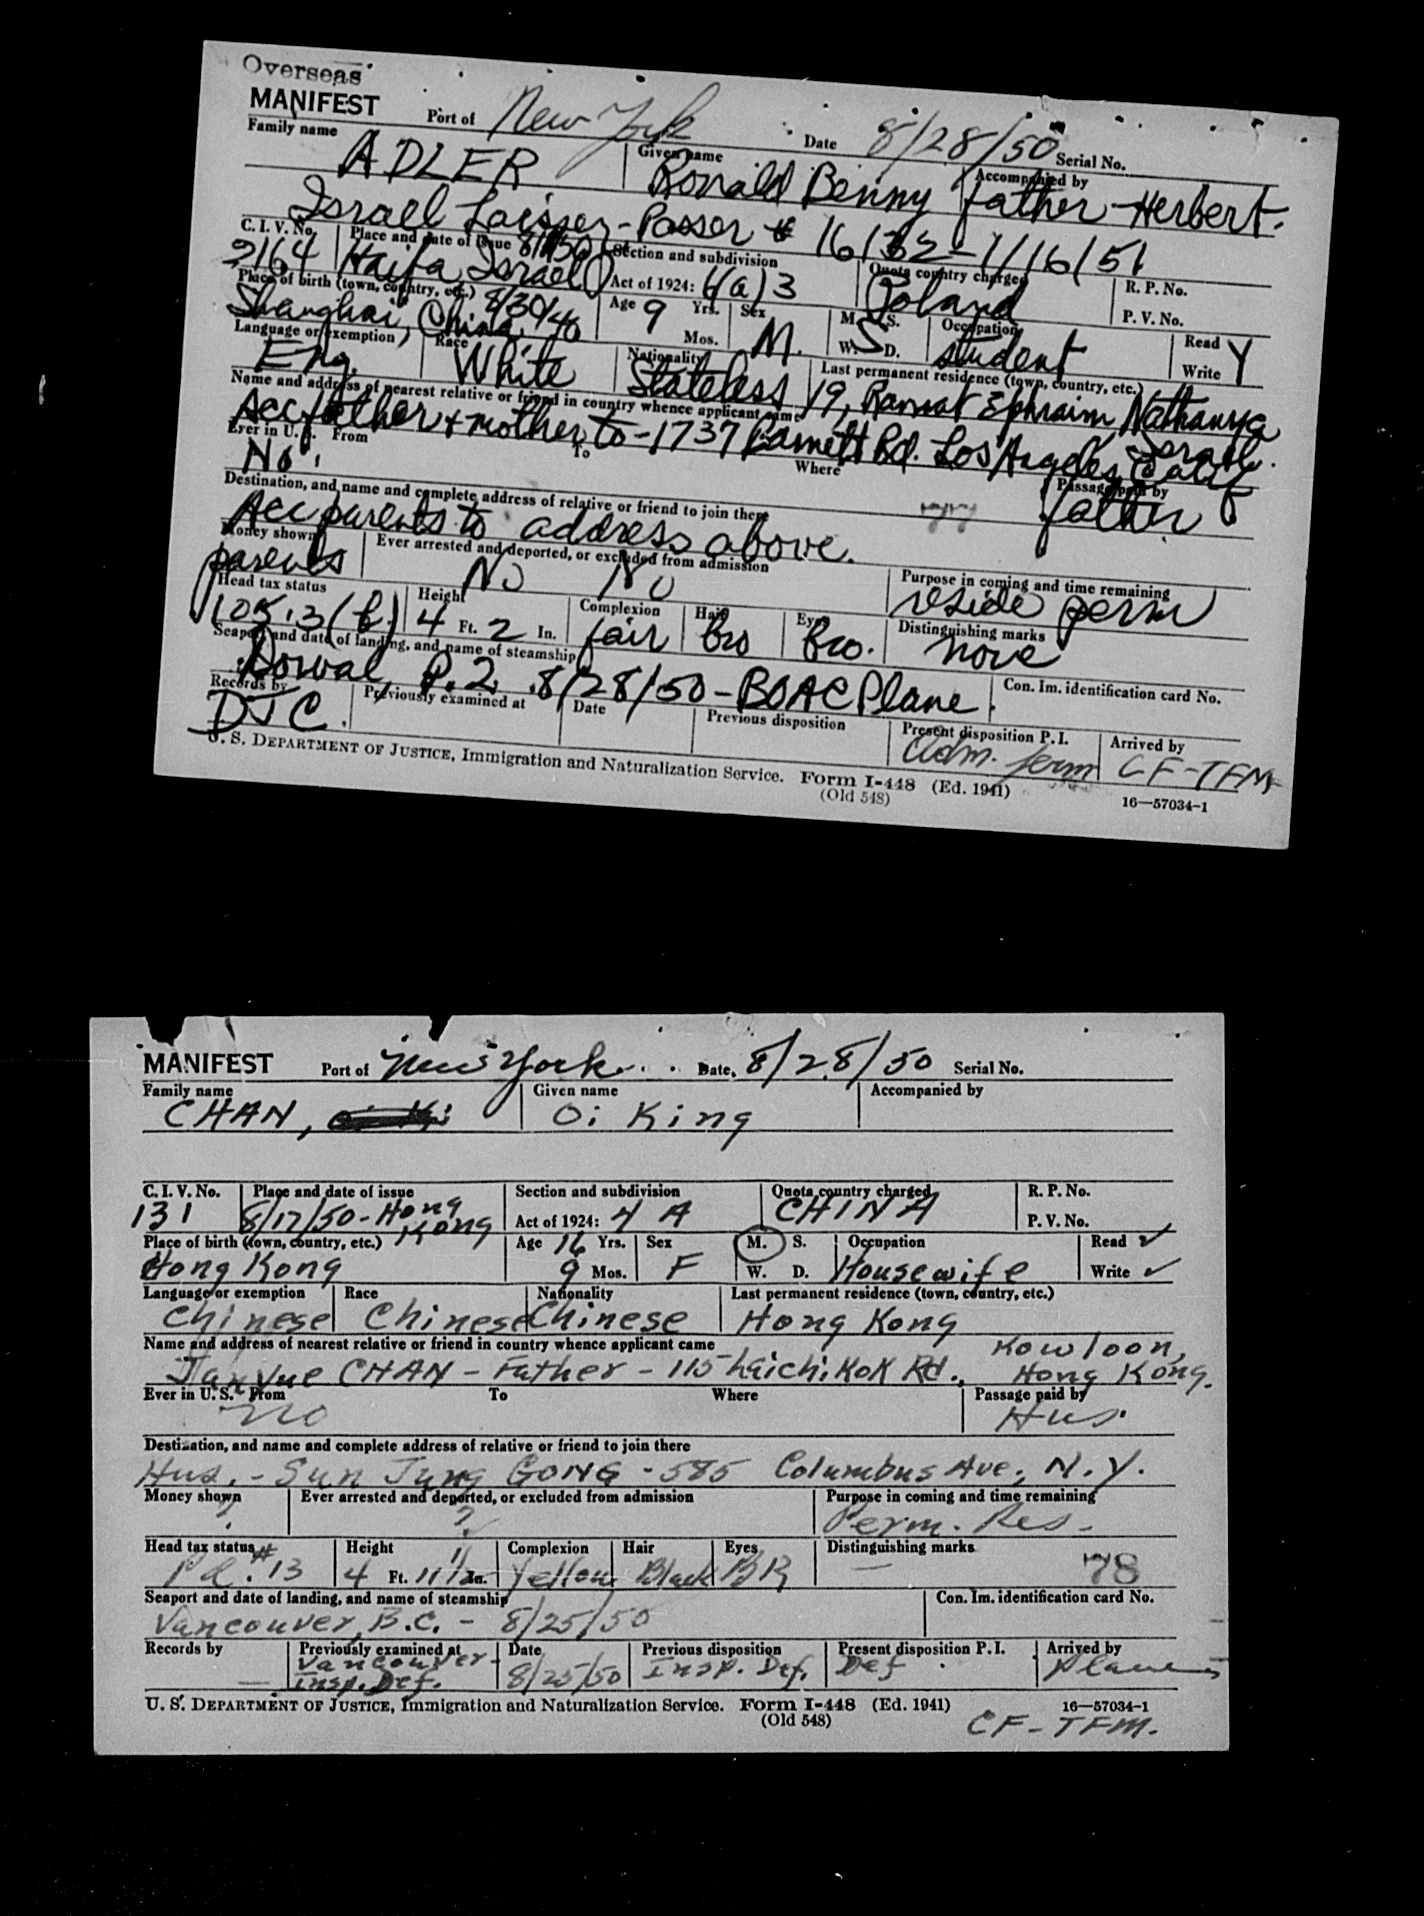 Overseas
MANIFEST Port of New York Date 8/28/50 Serial No.
Family name Given name Accompanied by
ADLER Ronald Benny father - Herbert.
Israel Laissez-Passer # 16/32 - 1/16/51
C. I. V. No. Place and date of issue Section and subdivision Quota country charged R. P. No.
2164 Haifa Israel Act of 1924: 6(a)3 Poland P. V. No.
Place of birth (town, country, etc.) Age 9 Yrs. Sex M. S. Occupation Read Y
Shanghai, China 8/30/40 Mos. M. W. S D. student Write
Language or exemption Race Nationality Last permanent residence (town, country, etc.)
Eng. White Stateless 19, Ramat Ephraim Nathanya Israel.
Name and address of nearest relative or friend in country whence applicant came
Acc father + mother to - 1737 Barnett Rd. Los Angeles, Calif
Ever in U. S. From To Where Passage paid by
No. father
Destination, and name and complete address of relative or friend to join there
Acc parents to address above.
Money shown Ever arrested and deported, or excluded from admission Purpose in coming and time remaining
parents No No reside perm
Head tax status Height Complexion Hair Eyes Distinguishing marks
105.3(b) 4 Ft. 2 In. fair bro Bro. none
Seaport and date of landing, and name of steamship Con. Im. identification card No.
P.2 8/28/50 - BOAC Plane.
Records by Previously examined at Date Previous disposition Present disposition P. I. Arrived by
DJC. Adm. Perm CF-TFM
U. S. DEPARTMENT OF JUSTICE, Immigration and Naturalization Service. Form I-448 (Ed. 1941) 16—57034-1
(Old 548)
MANIFEST Port of New York Date, 8/28/50 Serial No.
Family name Given name Accompanied by
CHAN, Oi King
C. I. V. No. Place and date of issue Section and subdivision Quota country charged R. P. No.
131 8/17/50 - Hong Kong Act of 1924: 4 A CHINA P. V. No.
Place of birth (town, country, etc.) Age 16 Yrs. Sex M. S. Occupation Read ✓
Hong Kong 9 Mos. F W. D. Housewife Write ✓
Language or exemption Race Nationality Last permanent residence (town, country, etc.)
Chinese Chinese Chinese Hong Kong
Name and address of nearest relative or friend in country whence applicant came Kowloon,
Yue CHAN - Father - 115 Laichikok Rd., Hong Kong.
Ever in U. S. From To Where Passage paid by
no Hus.
Destination, and name and complete address of relative or friend to join there
Hus. - Sun Jung GONG - 585 Columbus Ave., N.Y.
Money shown Ever arrested and deported, or excluded from admission Purpose in coming and time remaining
? ? Perm. Res.
Head tax status Height Complexion Hair Eyes Distinguishing marks
#13 4 Ft. 11 1/2 In. Yellow Black BR — 78
Seaport and date of landing, and name of steamship Con. Im. identification card No.
Vancouver, B.C. - 8/25/50
Records by Previously examined at Date Previous disposition Present disposition P. I. Arrived by
— Vancouver - Insp. Def. 8/25/50 Insp. Def. Def Plane
U. S. DEPARTMENT OF JUSTICE, Immigration and Naturalization Service. Form I-448 (Ed. 1941) 16—57034-1
(Old 548) CF-TFM.